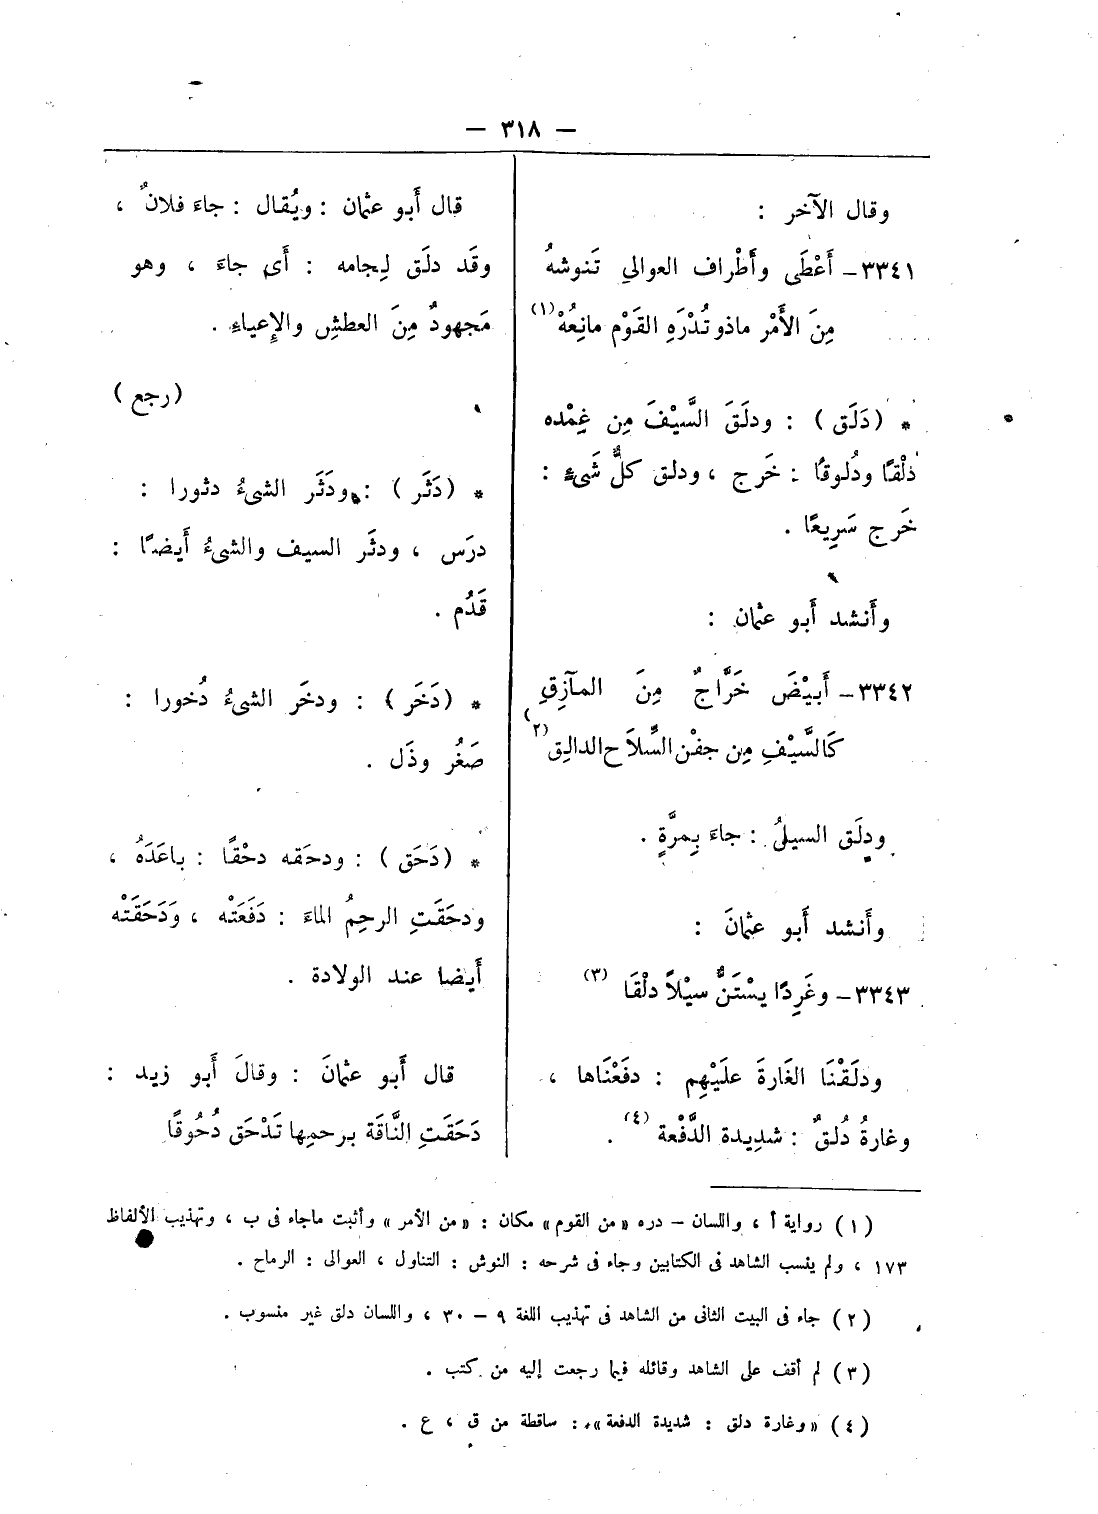 — ٣١٨ —
وقال الآخر :
٣٣٤١ – أَعْطَى وأَطْراف العوالى تَنوشهُ
مِنَ الأَمْر ماذو تُدْرَهِ القَوْم مانِعُهْ (١)
* (دَلَق) : ودلَقَ السَّيْفَ مِن غِمْده
ذلْقًا ودُلوقًا : خَرج ، ودلق كلُّ شَىءٍ :
خَرج سَرِيعًا .
وأَنشد أَبو عثمان :
٣٣٤٢ – أَبيْضَ خَرَّاجٌ مِنَ المآزِقِ
كَالسَّيْفِ مِن جفْن السِّلاَح الدالِق (٢)
ودلَق السيلُ : جاءَ بِمرَّةٍ .
وأَنشد أَبو عثمانَ :
٣٣٤٣ – وغَرِدًا يسْتَنُّ سيْلاً دلْقَا (٣)
ودلَقْنَا الغَارةَ علَيْهِم : دفَعْنَاها ،
وغارةُ دُلقٌ : شدِيدة الدَّفْعة (٤) .
قال أَبو عثمان : ويُقال : جاءَ فلانٌ ،
وقَد دلَق لِجامه : أَى جاءَ ، وهو
مَجهودٌ مِنَ العطشِ والإِعياءِ .
(رجع)
* (دَثَر) : ودَثَر الشىءُ دثورا :
درَس ، ودثَر السيف والشىءُ أَيضًا :
قَدُم .
* (دَخَر) : ودخَر الشىءُ دُخورا :
صَغُر وذَل .
* (دَحَق) : ودحَقه دحْقًا : باعَدَهُ ،
ودحَقَتِ الرحِمُ الماءَ : دَفَعَتْه ، وَدَحَقَتْه
أَيضا عند الولادة .
قال أَبو عثمانَ : وقالَ أَبو زيد :
دَحَقَتِ النَّاقَة برحمِها تَدْحَق دُحُوقًا
(١) رواية أ ، واللسان – دره «من القوم» مكان : «من الأمر» وأثبت ماجاء فى ب ، وتهذيب الألفاظ
١٧٣ ، ولم ينسب الشاهد فى الكتابين وجاء فى شرحه : النوش : التناول ، العوالى : الرماح .
(٢) جاء فى البيت الثانى من الشاهد فى تهذيب اللغة ٩ – ٣٠ ، واللسان دلق غير منسوب .
(٣) لم أقف على الشاهد وقائله فيما رجعت إليه من كتب .
(٤) «وغارة دلق : شديدة الدفعة» : ساقطة من ق ، ع .